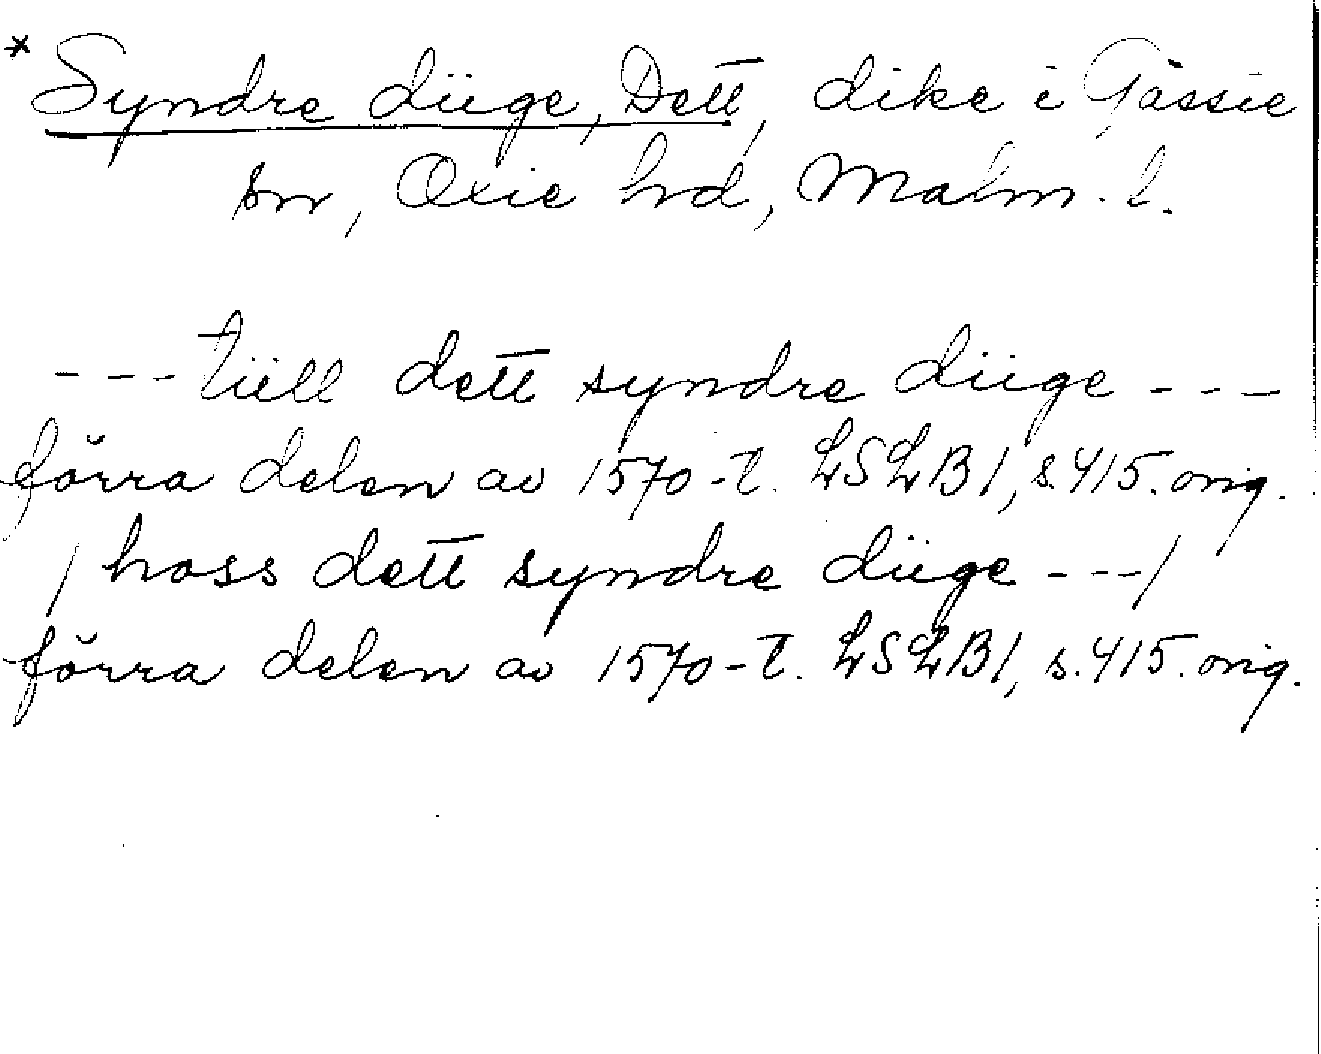 * Syndre diige, Dett, dike i Gässie
sn, Oxie hd, Malm. l.
--- tiill dett syndre diige ---
förra delen av 1570-t. LSLB1, s. 415. orig.
/ hoss dett syndre diige ---/
förra delen av 1570-t. LSLB1, s. 415. orig.